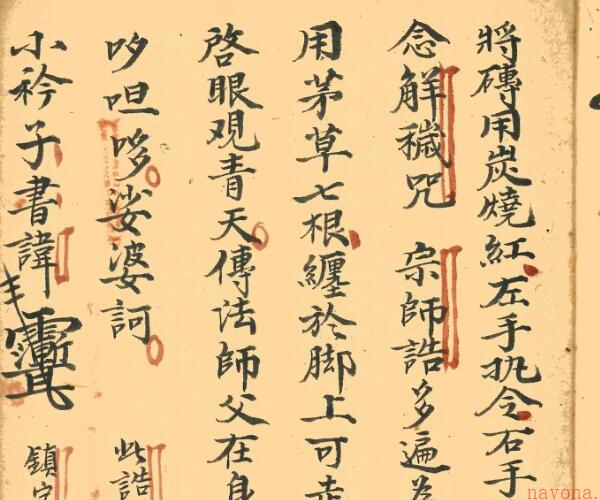 將磚用炭燒紅左手执令右手
念解穢咒 宗師誥多遍
用茅草七根纏於脚上可走
啓眼观青天傳法師父在身
哆呾哆娑婆訶 此誥
小衿子書諱 鎮宅
navona.